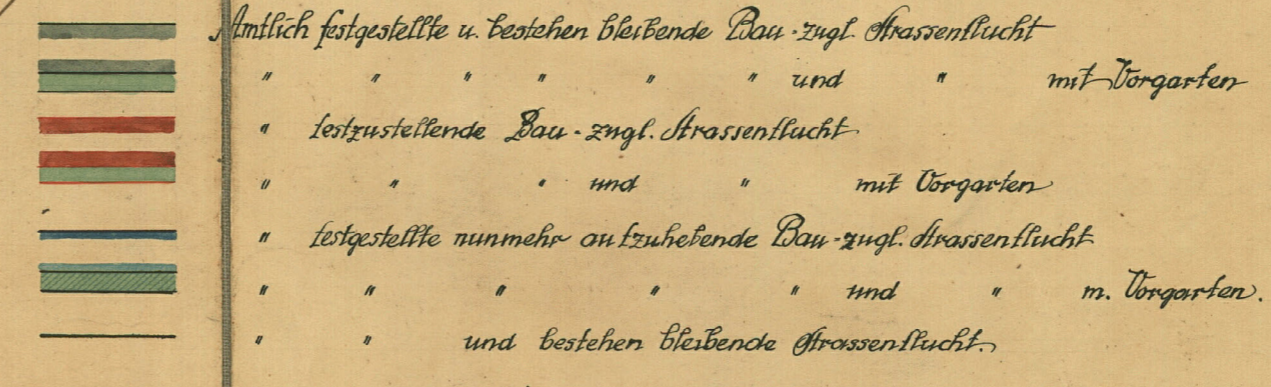 Amtlich festgestellte u. bestehen bleibende Bau-zugl. Strassenflucht
" " " " " " und " mit Vorgarten
" festzustellende Bau-zugl. Strassenflucht
" " " und " mit Vorgarten
" festgestellte nunmehr aufzuhebende Bau-zugl. Strassenflucht
" " " " " und " m. Vorgarten.
" " und bestehen bleibende Strassenflucht.